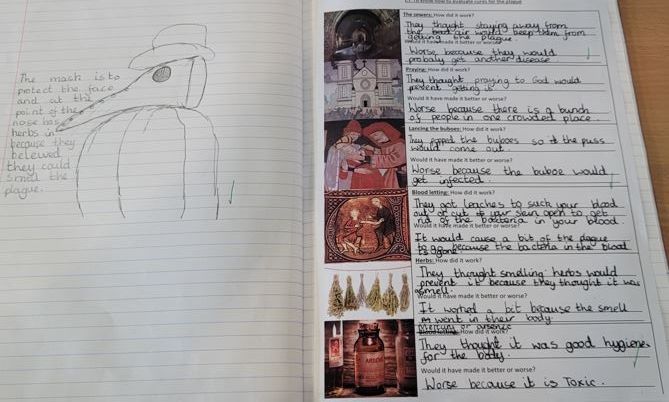 The mask is to
protect the face
and at the
point of the
nose has
herbs in
because they
beleived
they could
smell the
plague.
LI: To know how to evaluate cures for the plague
The sewers: How did it work?
They thought staying away from
the bad air would keep them from
getting the plague.
Would it have made it better or worse?
Worse because they would
probaly get another disease
Praying: How did it work?
They thought praying to God would
prevent getting it
Would it have made it better or worse?
Worse because there is a bunch
of people in one crowded place
Lancing the buboes: How did it work?
They popped the buboes so the puss
would come out.
Would it have made it better or worse?
Worse because the buboe would
get infected.
Blood letting: How did it work?
They got leaches to suck your blood
out or cut your skin open to get
rid of the bacteria in your blood
Would it have made it better or worse?
It would cause a bit of the plague
to go because the bacteria in the blood
is gone
Herbs: How did it work?
They thought smelling herbs would
prevent it because they thought it was
a smell.
Would it have made it better or worse?
It worked a bit because the smell
went in their body
Mercury or arsenic
How did it work?
They thought it was good hygiene
for the body.
Would it have made it better or worse?
Worse because it is Toxic.